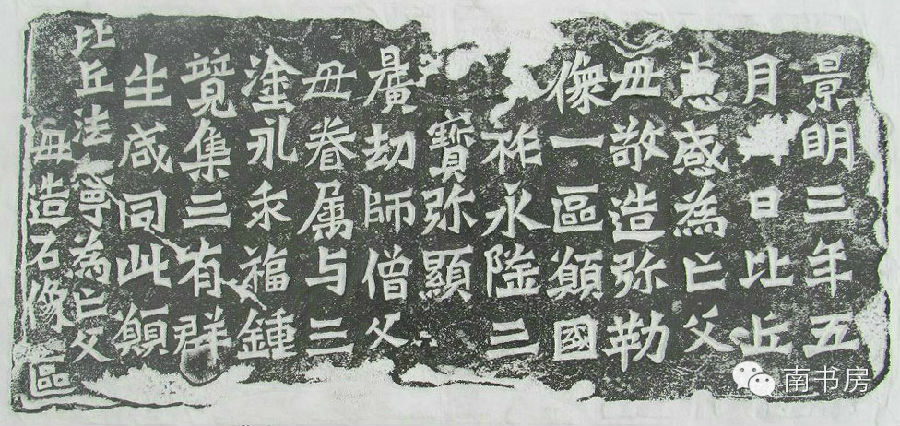 景明三年五
月日比丘
惠感為亡父
母敬造弥勒
像一區願國
祚永隆三
寶弥顯
曠劫師僧父
母眷属与三
塗永乖福鍾
競集三有群
生咸同此願
比丘法寧為亡父
母造石像區
南书房